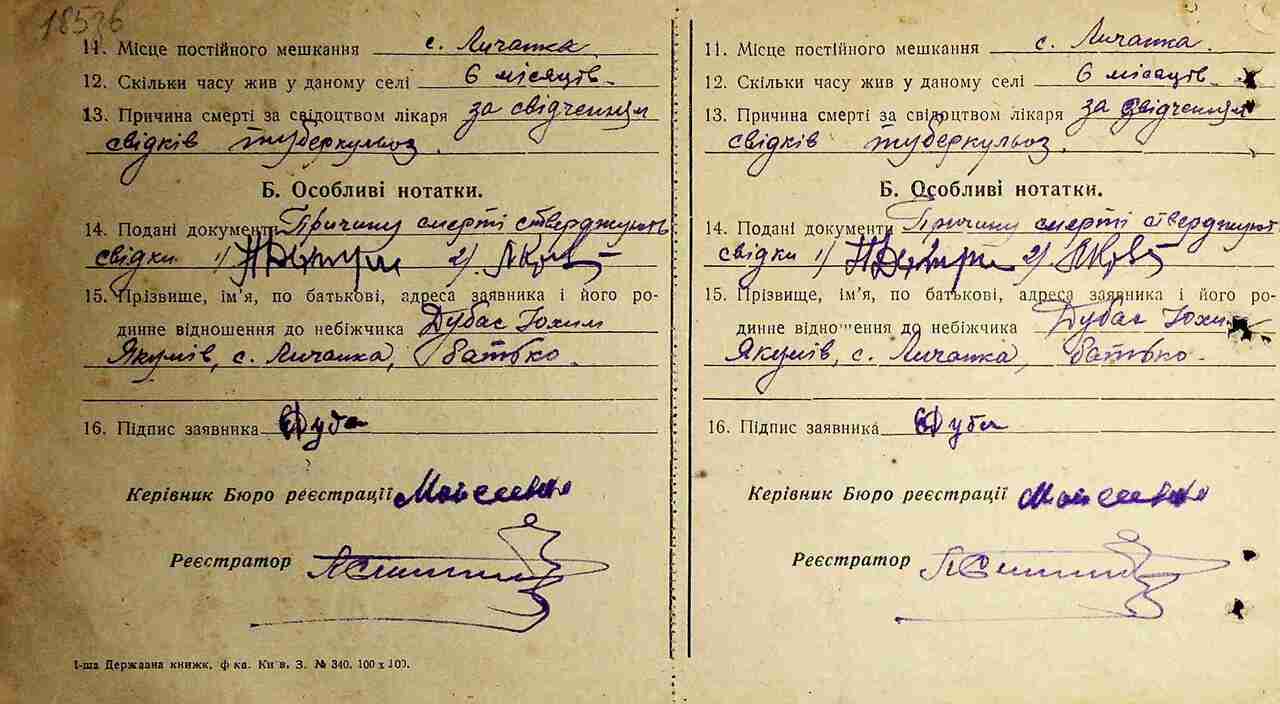 18536
11. Місце постійного мешкання с. Личанка
12. Скільки часу жив у даному селі 6 місяців.
13. Причина смерті за свідоцтвом лікаря за свідченням
свідків туберкульоз.
Б. Особливі нотатки.
14. Подані документи Причину смерті стверджують
свідки 1) 2)
15. Прізвище, ім'я, по батькові, адреса заявника і його ро-
динне відношення до небіжчика Дубас Юхим
Якумів, с. Личанка, батько.
16. Підпис заявника Дуба
Керівник Бюро реєстрації Мойсеєнко
Реєстратор
1-ша Державна книжк. ф-ка. Київ. З. № 340. 100 х 100.
11. Місце постійного мешкання с. Личанка.
12. Скільки часу жив у даному селі 6 місяців
13. Причина смерті за свідоцтвом лікаря за свідченням
свідків туберкульоз.
Б. Особливі нотатки.
14. Подані документи Причину смерті стверджують
свідки 1) 2)
15. Прізвище, ім'я, по батькові, адреса заявника і його ро-
динне відношення до небіжчика Дубас Юхим
Якумів, с. Личанка, батько.
16. Підпис заявника Дуба
Керівник Бюро реєстрації Мойсеєнко
Реєстратор